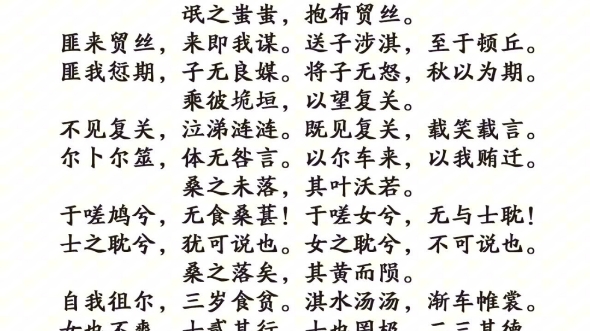 氓之蚩蚩，抱布贸丝。
匪来贸丝，来即我谋。送子涉淇，至于顿丘。
匪我愆期，子无良媒。将子无怒，秋以为期。
乘彼垝垣，以望复关。
不见复关，泣涕涟涟。既见复关，载笑载言。
尔卜尔筮，体无咎言。以尔车来，以我贿迁。
桑之未落，其叶沃若。
于嗟鸠兮，无食桑葚！于嗟女兮，无与士耽！
士之耽兮，犹可说也。女之耽兮，不可说也。
桑之落矣，其黄而陨。
自我徂尔，三岁食贫。淇水汤汤，渐车帷裳。
女也不爽，士贰其行。士也罔极，二三其德